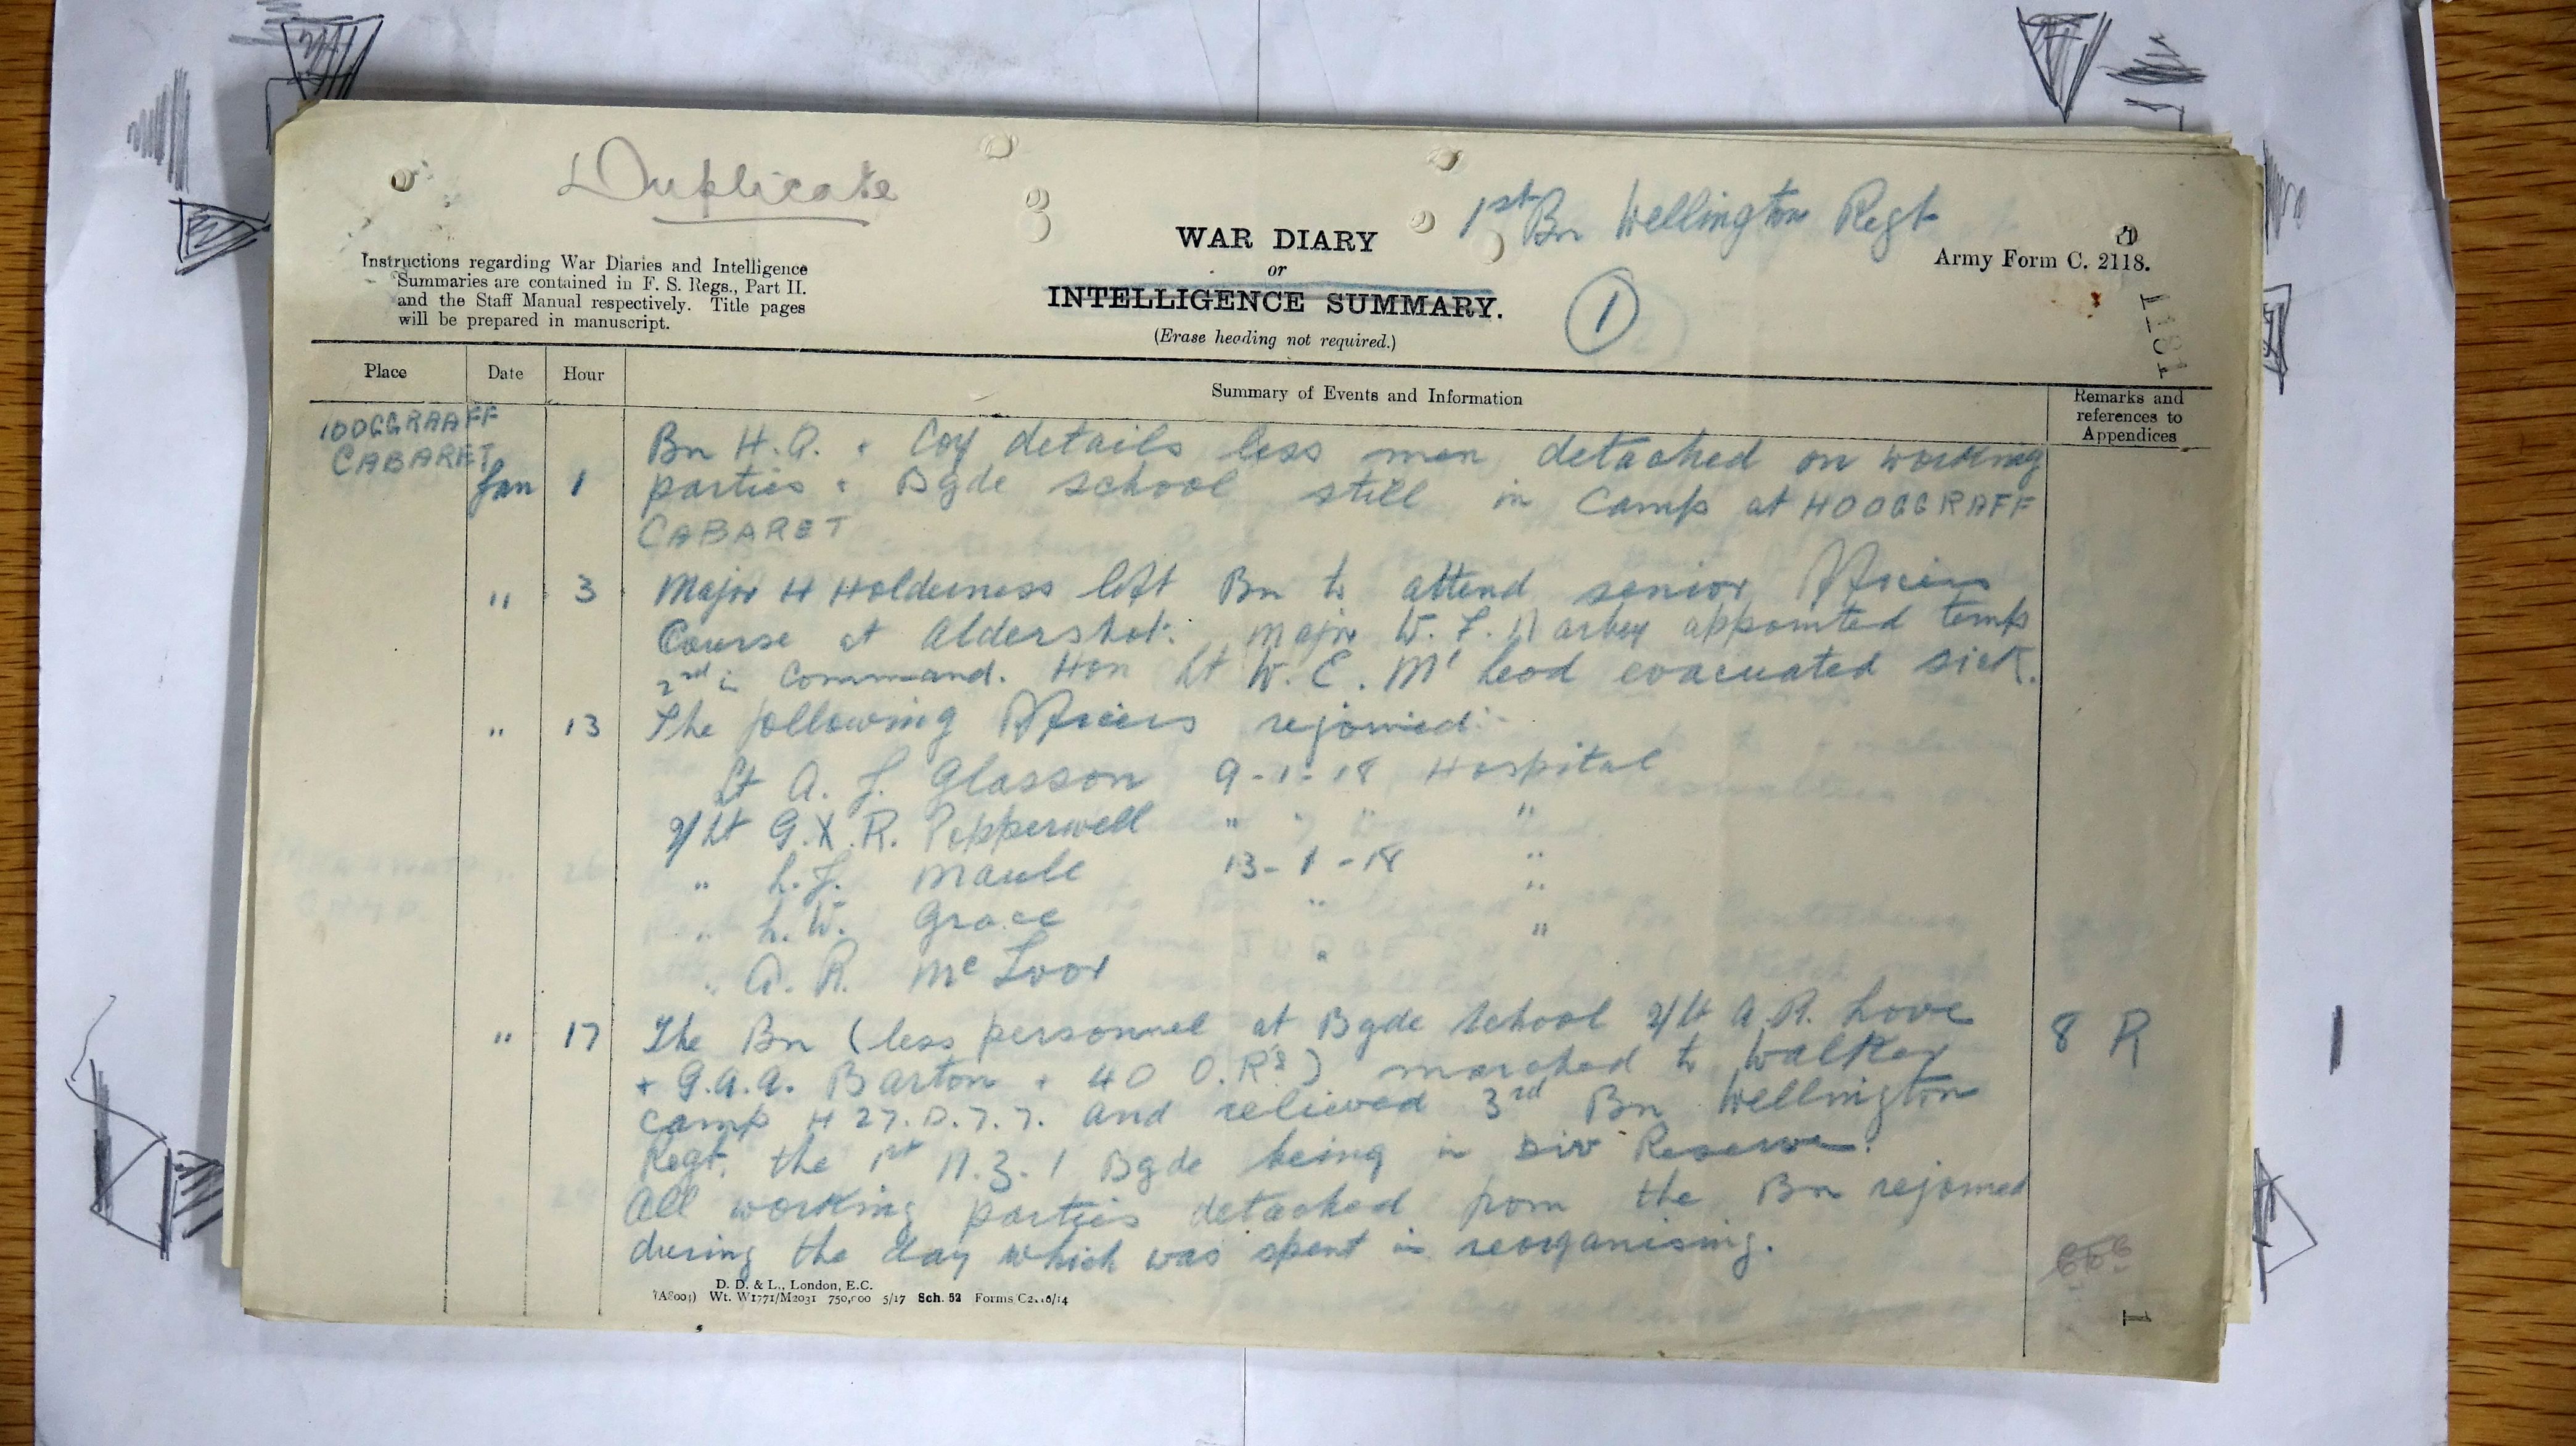 Duplicate
1st Bn Wellington Regt
WAR DIARY
or
INTELLIGENCE SUMMARY.
(Erase heading not required.)
1
Army Form C. 2118.
1181
Instructions regarding War Diaries and Intelligence
Summaries are contained in F. S. Regs., Part II.
and the Staff Manual respectively. Title pages
will be prepared in manuscript.
Place Date Hour Summary of Events and Information Remarks and
references to
Appendices
HOOGGRAAFF
CABARET
Bn H.Q. + Coy details less men detached on working
Jan 1 parties + Bgde school still in Camp at HOOGGRAFF
CABARET
" 3 Major H Holderness left Bn to attend senior Officers
Course at Aldershot. Major W. F. Narbey appointed temp
2nd in Command. Hon Lt W. E. Mc Leod evacuated sick.
" 13 The following Officers rejoined:-
Lt A. J. Glasson 9-1-18 Hospital
2/Lt G. X. R. Pepperwell " " " "
" L. J. Maule 13-1-18 "
" L. W. Grace " "
" A. R. Mc Ivor " "
" 17 The Bn (less personnel at Bgde School 2/Lt A. R. Love 8 R
+ G.A.A. Barton + 40 O.R's) marched to Walker
camp H 27. D. 7. 7. and relieved 3rd Bn Wellington
Regt. the 1st N.Z. I Bgde being in Div Reserve.
All working parties detached from the Bn rejoined
during the day which was spent in reorganising.
D. D. & L., London, E.C.
(A8001) Wt. W1771/M2031 750,000 5/17 Sch. 52 Forms C2118/14
1